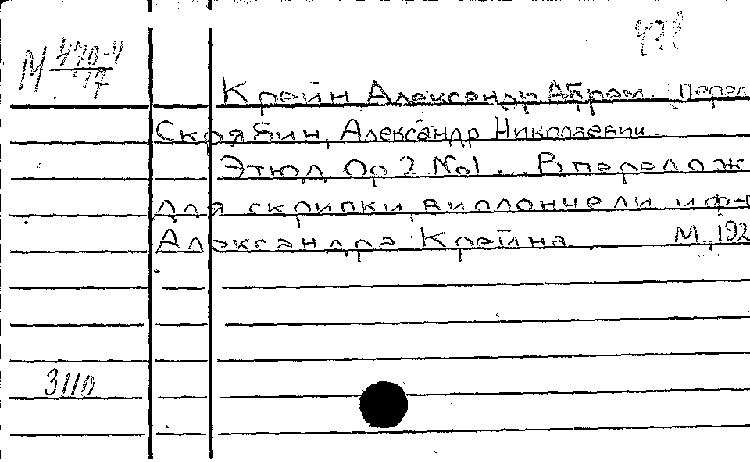 М 470-4/77
Крейн Александр Абрам. Перел
Скрябин, Александр Николаевич
Этюд Op 2 No 1. В перелож
для скрипки, виолончели и фп
Александра Крейна М., 192
3110